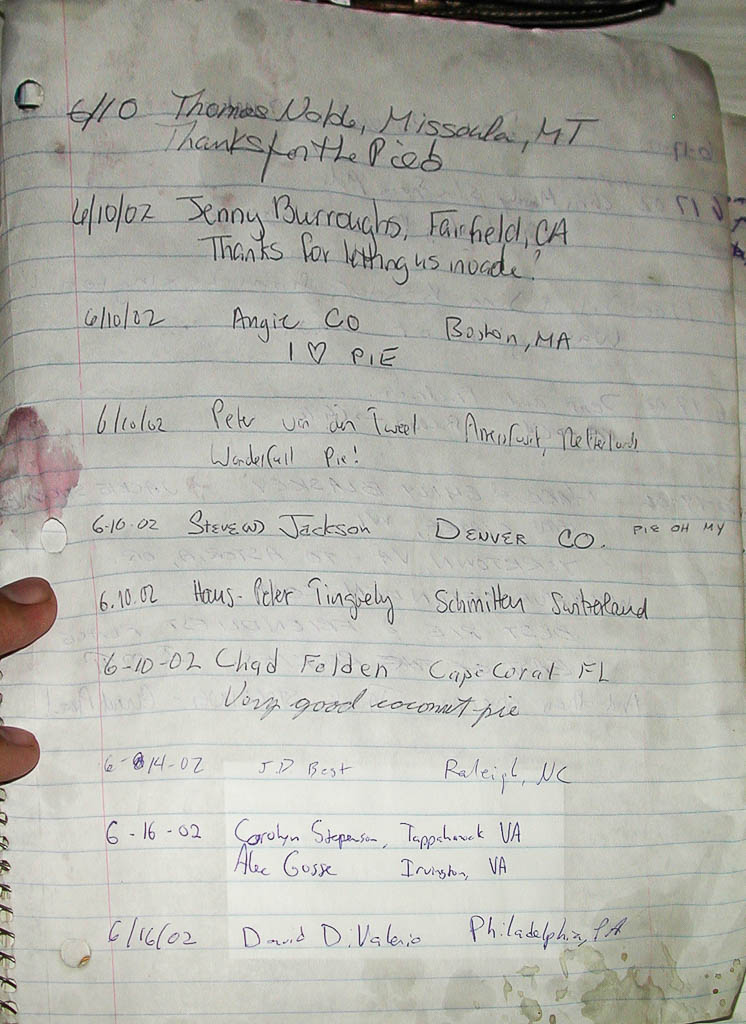 6/10 Thomas Nolde, Missoula, MT
Thanks for the Pieb
6/10/02 Jenny Burroughs, Fairfield, CA
Thanks for letting us invade!
6/10/02 Angie Co Boston, MA
I ♡ PIE
6/10/02 Peter van den Tweel Amersfoort, Netherlands
Wonderfull Pie!
6-10-02 Steve Jackson DENVER CO. PIE OH MY
6.10.02 Hans-Peter Tinguely Schmitten Switzerland
6-10-02 Chad Folden Cape Coral FL
Very good coconut pie
6-14-02 J.D Best Raleigh, NC
6-16-02 Carolyn Stepenson, Tappahanock VA
Alec Gosse Irvington, VA
6/16/02 David DiValerio Philadelphia, PA